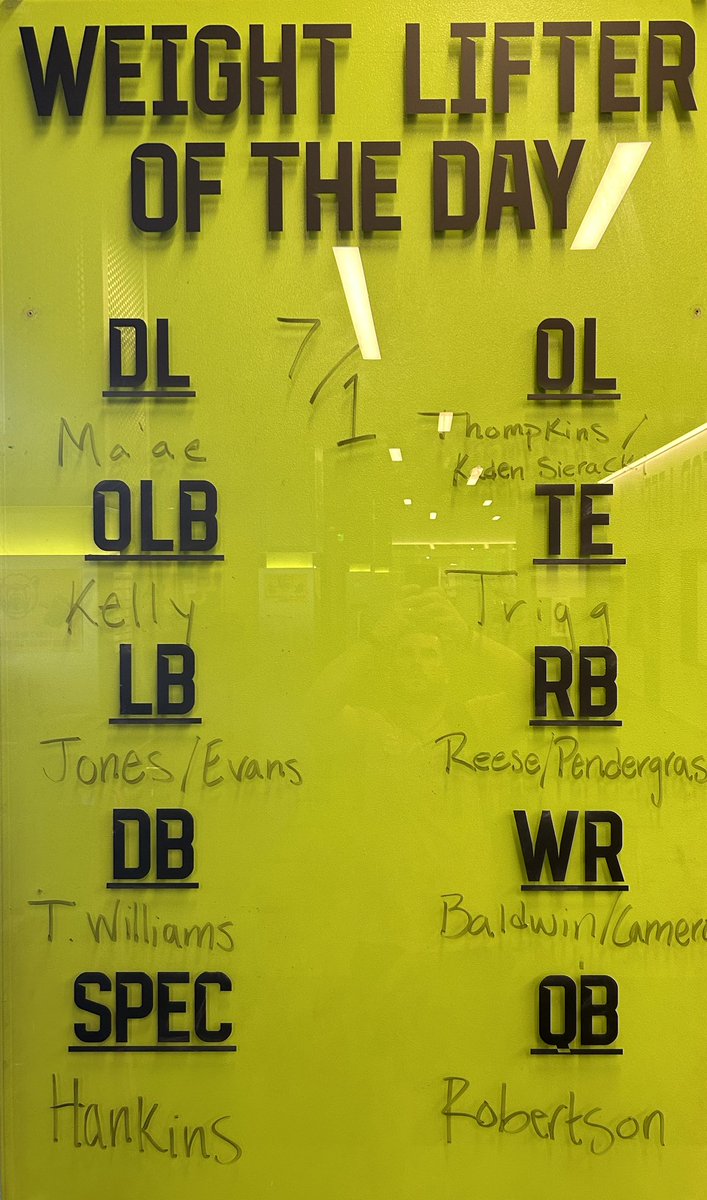 WEIGHT LIFTER
OF THE DAY
7/1
DL
Maae
OLB
Kelly
LB
Jones/Evans
DB
T. Williams
SPEC
Hankins
OL
Thompkins/
Kaden Sieracki
TE
Trigg
RB
Reese/Pendergras
WR
Baldwin/Camero
QB
Robertson